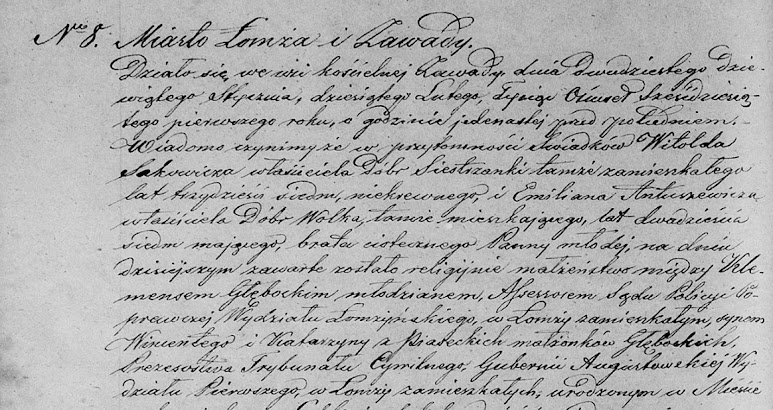 Nro 8. Miasto Łomża i Zawady.
Działo się we wsi kościelnej Zawady dnia dwudziestego dzie-
wiątego Stycznia, dziesiątego Lutego, Tysiąc Ośmset Sześćdziesią-
tego pierwszego roku, o godzinie jedenastej przed południem.
Wiadomo czynimy że w przytomności świadków Witolda
Sakowicza właściciela Dóbr Siestrzanki tamże zamieszkałego
lat trzydzieści siedm, niekrewnego, i Emiliana Antuszewicza
właściciela Dóbr Wolka, tamże mieszkającego, lat dwadzieścia
siedm mającego, brata ciotecznego Panny młodej, na dniu
dzisiejszym zawarte zostało religijnie małżeństwo między Kle-
mensem Głębockim, młodzianem, Assessorem Sądu Policyi Po-
prawczej Wydziału Łomżyńskiego, w Łomży zamieszkałym, synem
Wincentego i Katarzyny z Piaseckich małżonków Głębockich,
Prezesostwa Trybunału Cywilnego, Gubernii Augustowskiej Wy-
działu Pierwszego, w Łomży zamieszkałych, urodzonym w Mieście